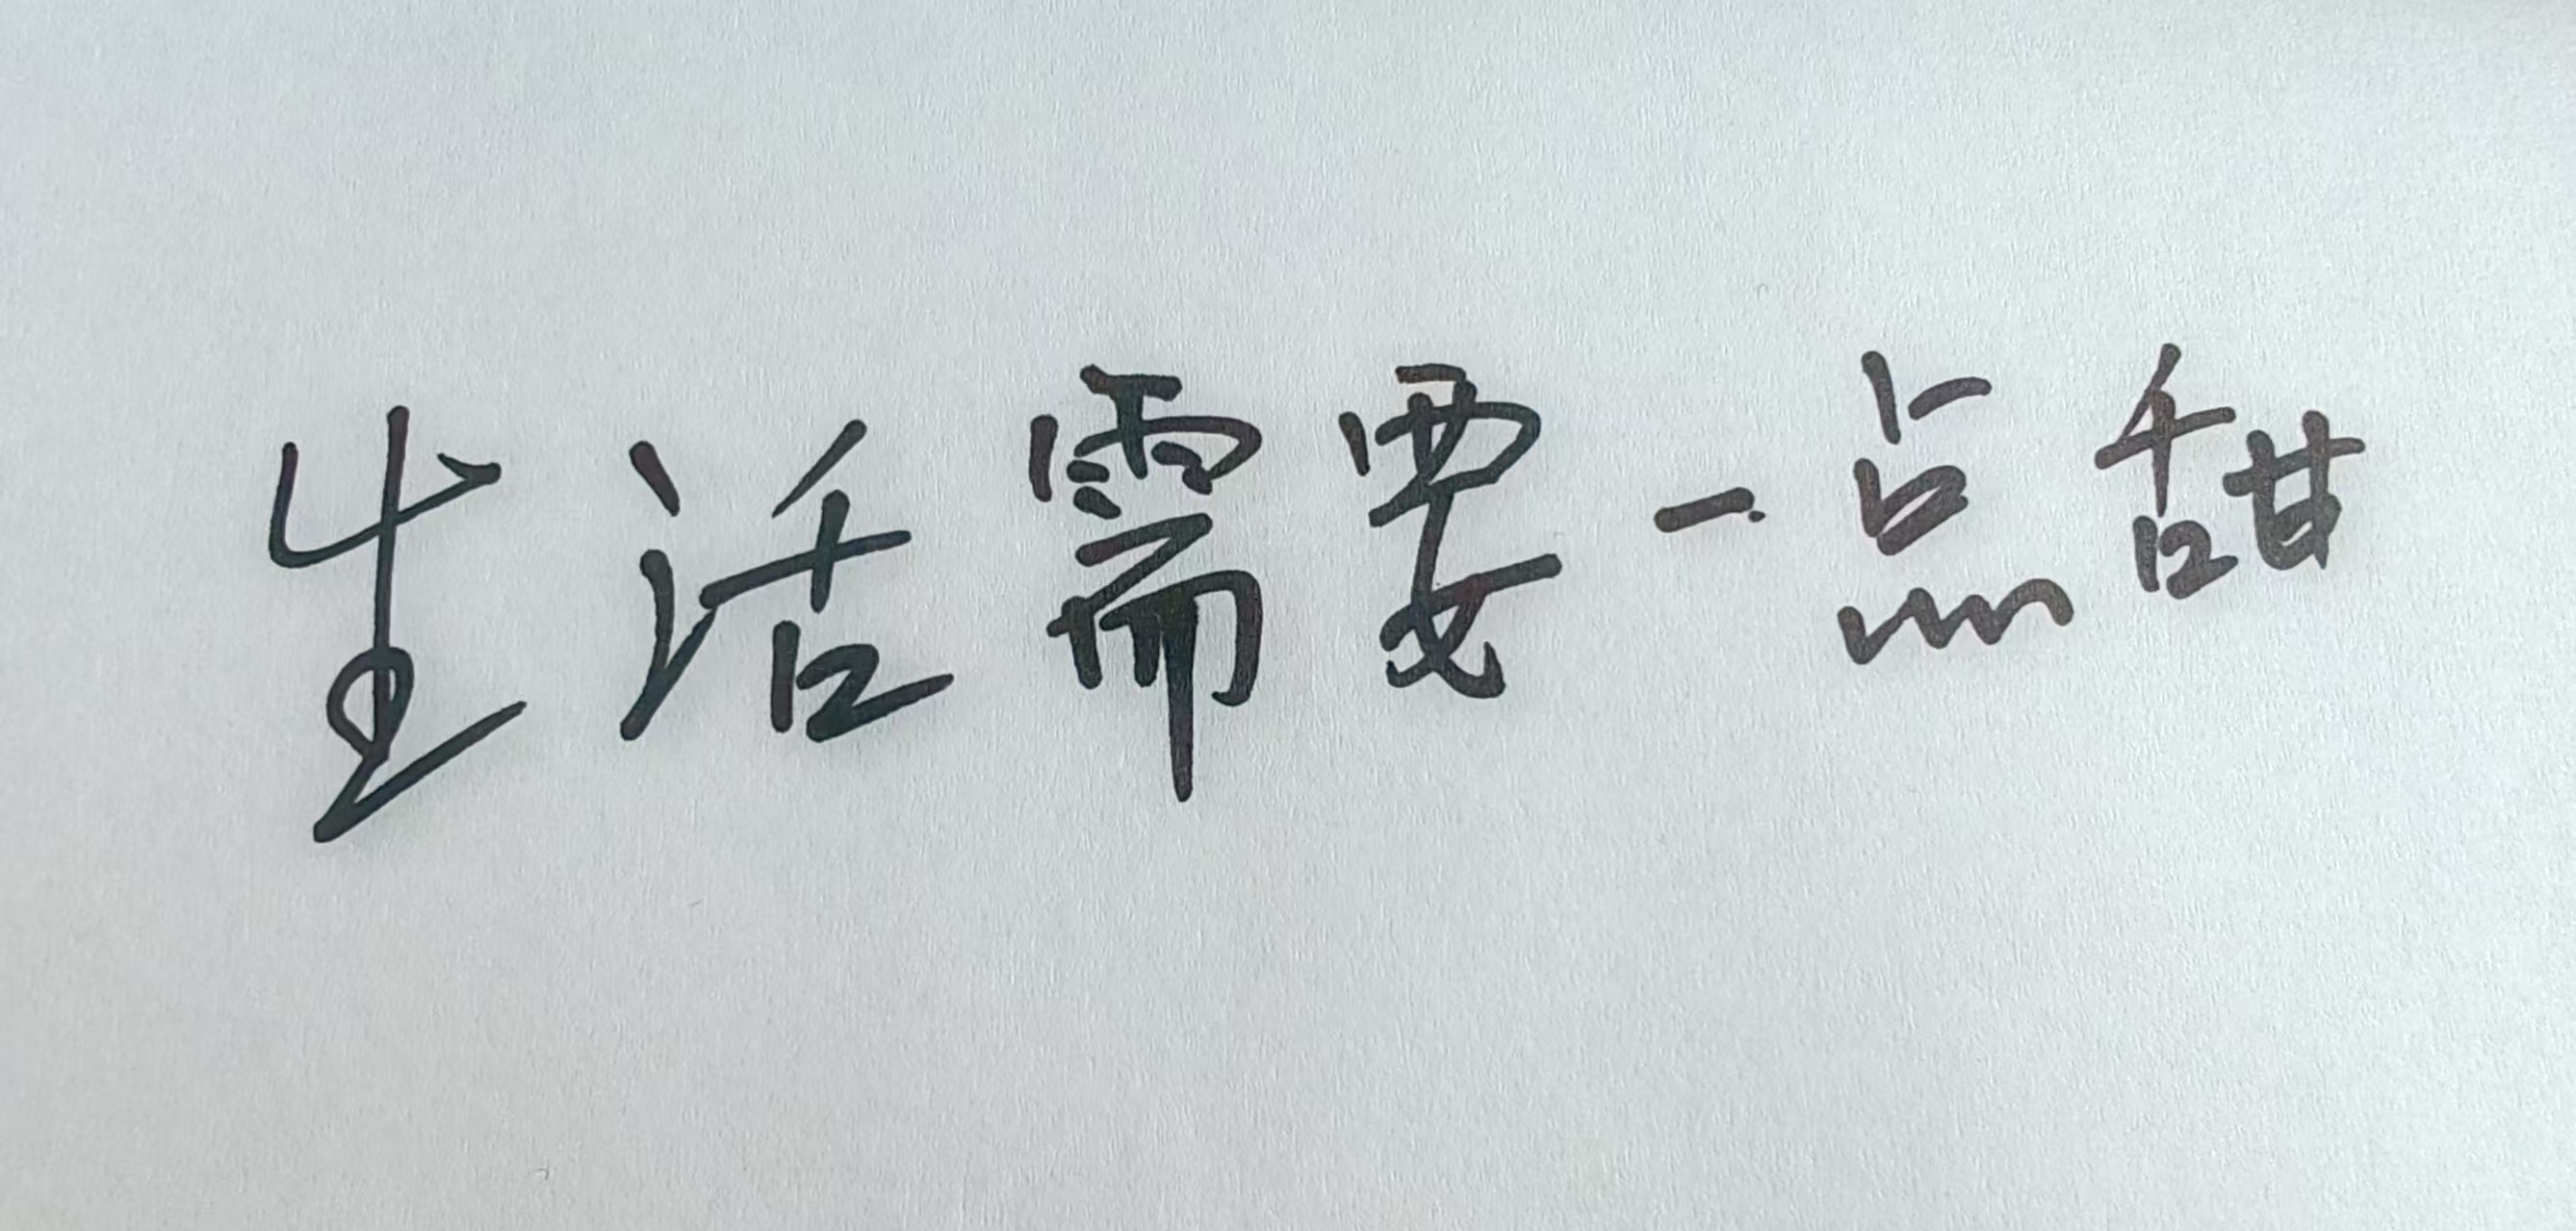 生活需要一点甜